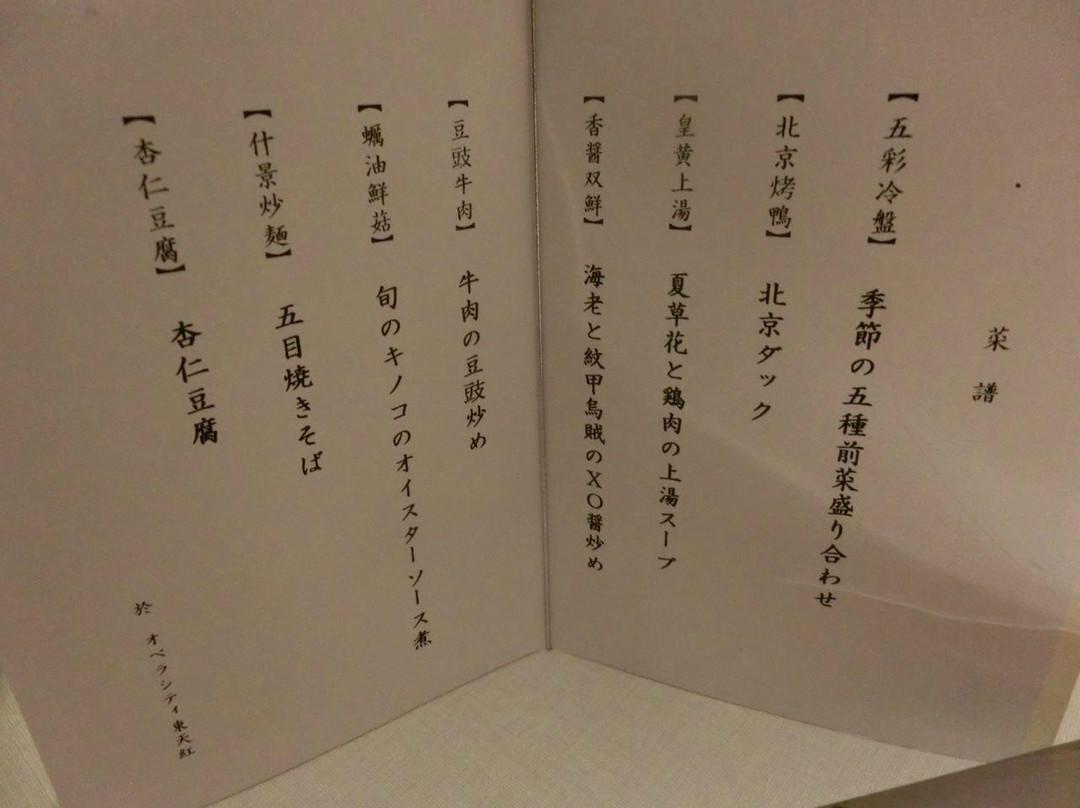 菜譜
【五彩冷盤】 季節の五種前菜盛り合わせ
【北京烤鴨】 北京ダック
【皇黄上湯】 夏草花と鶏肉の上湯スープ
【香醤双鮮】 海老と紋甲烏賊のXO醤炒め
【豆豉牛肉】 牛肉の豆豉炒め
【蠣油鮮菇】 旬のキノコのオイスターソース煮
【什景炒麺】 五目焼きそば
【杏仁豆腐】 杏仁豆腐
於 オペラシティ東天紅